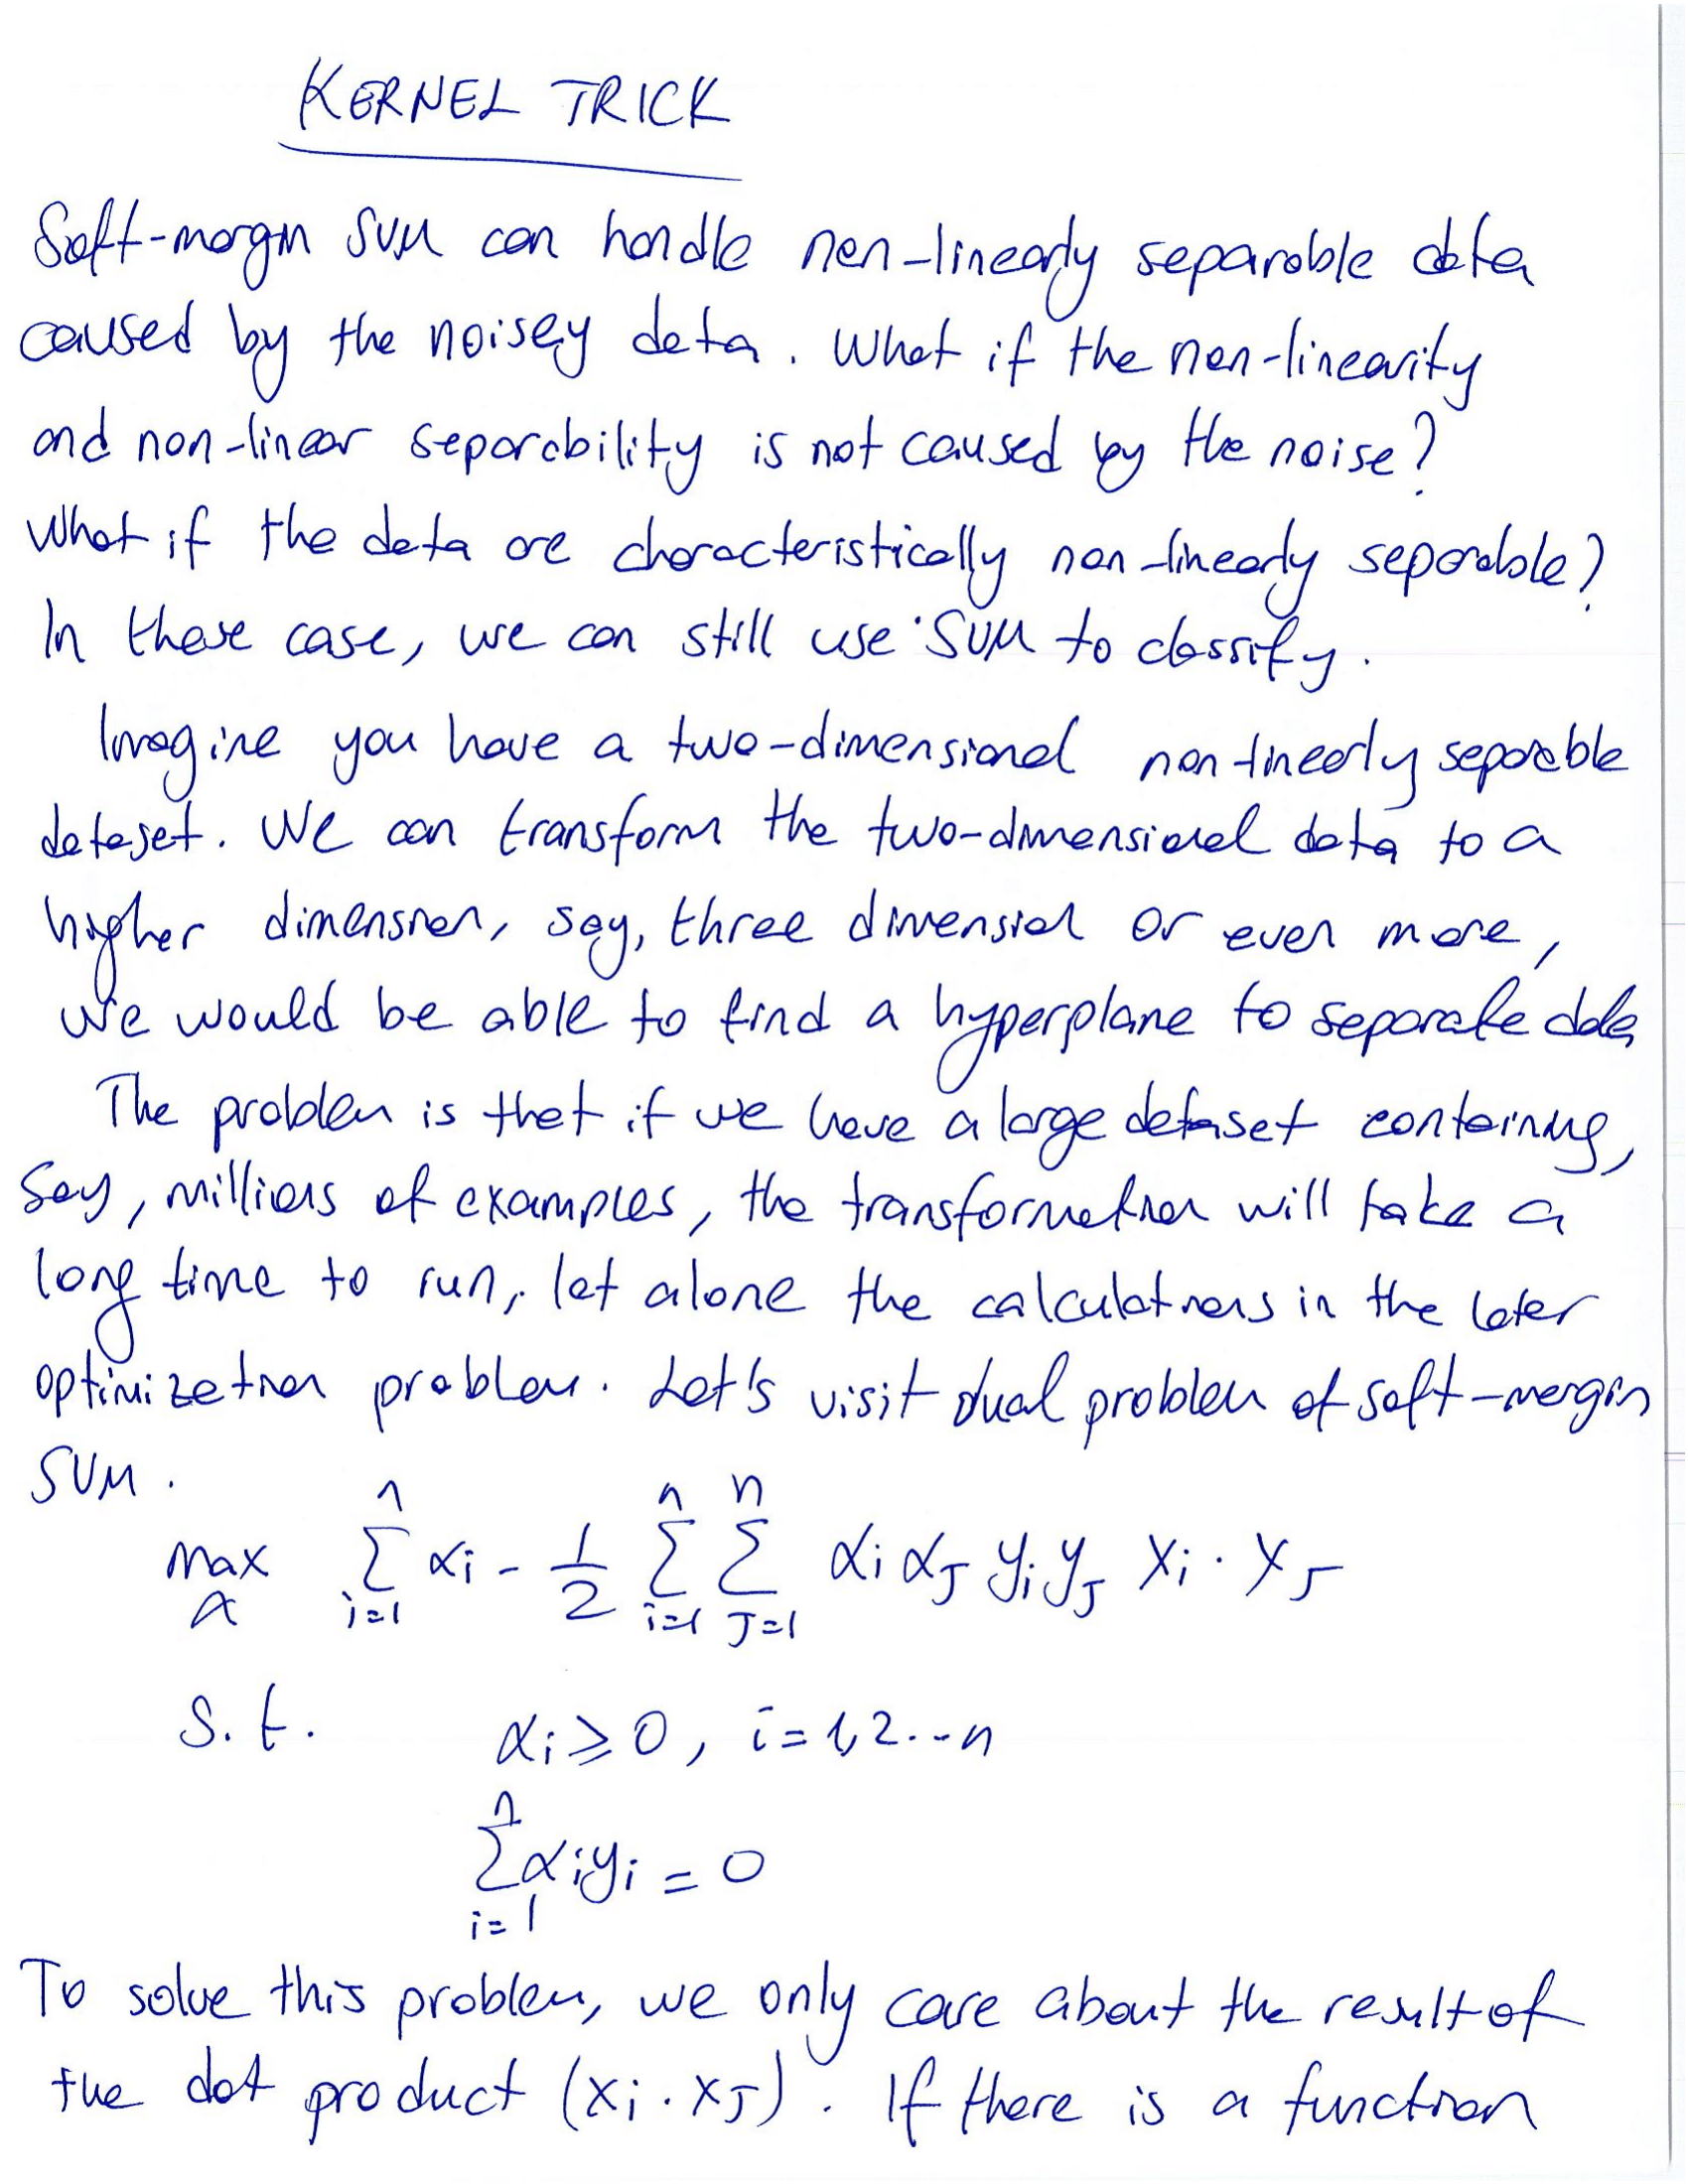 KERNEL TRICK
Soft-margin SVM can handle non-linearly separable data
caused by the noisey data. What if the non-linearity
and non-linear separability is not caused by the noise?
What if the data are characteristically non-linearly separable?
In these case, we can still use SVM to classify.
Imagine you have a two-dimensional non-linearly separable
dataset. We can transform the two-dimensional data to a
higher dimension, say, three dimensial or even more,
we would be able to find a hyperplane to separate data
The problem is that if we have a large dataset containing,
say, millions of examples, the transformation will take a
long time to run, let alone the calculations in the later
optimization problem. Let's visit dual problem of soft-margin
SVM.
max_α ∑_{i=1}^{n} αi - 1/2 ∑_{i=1}^{n} ∑_{J=1}^{n} αi αJ yi yJ xi · xJ
s.t. αi ≥ 0, i=1,2...n
∑_{i=1}^{n} αi yi = 0
To solve this problem, we only care about the result of
the dot product (xi · xJ). If there is a function